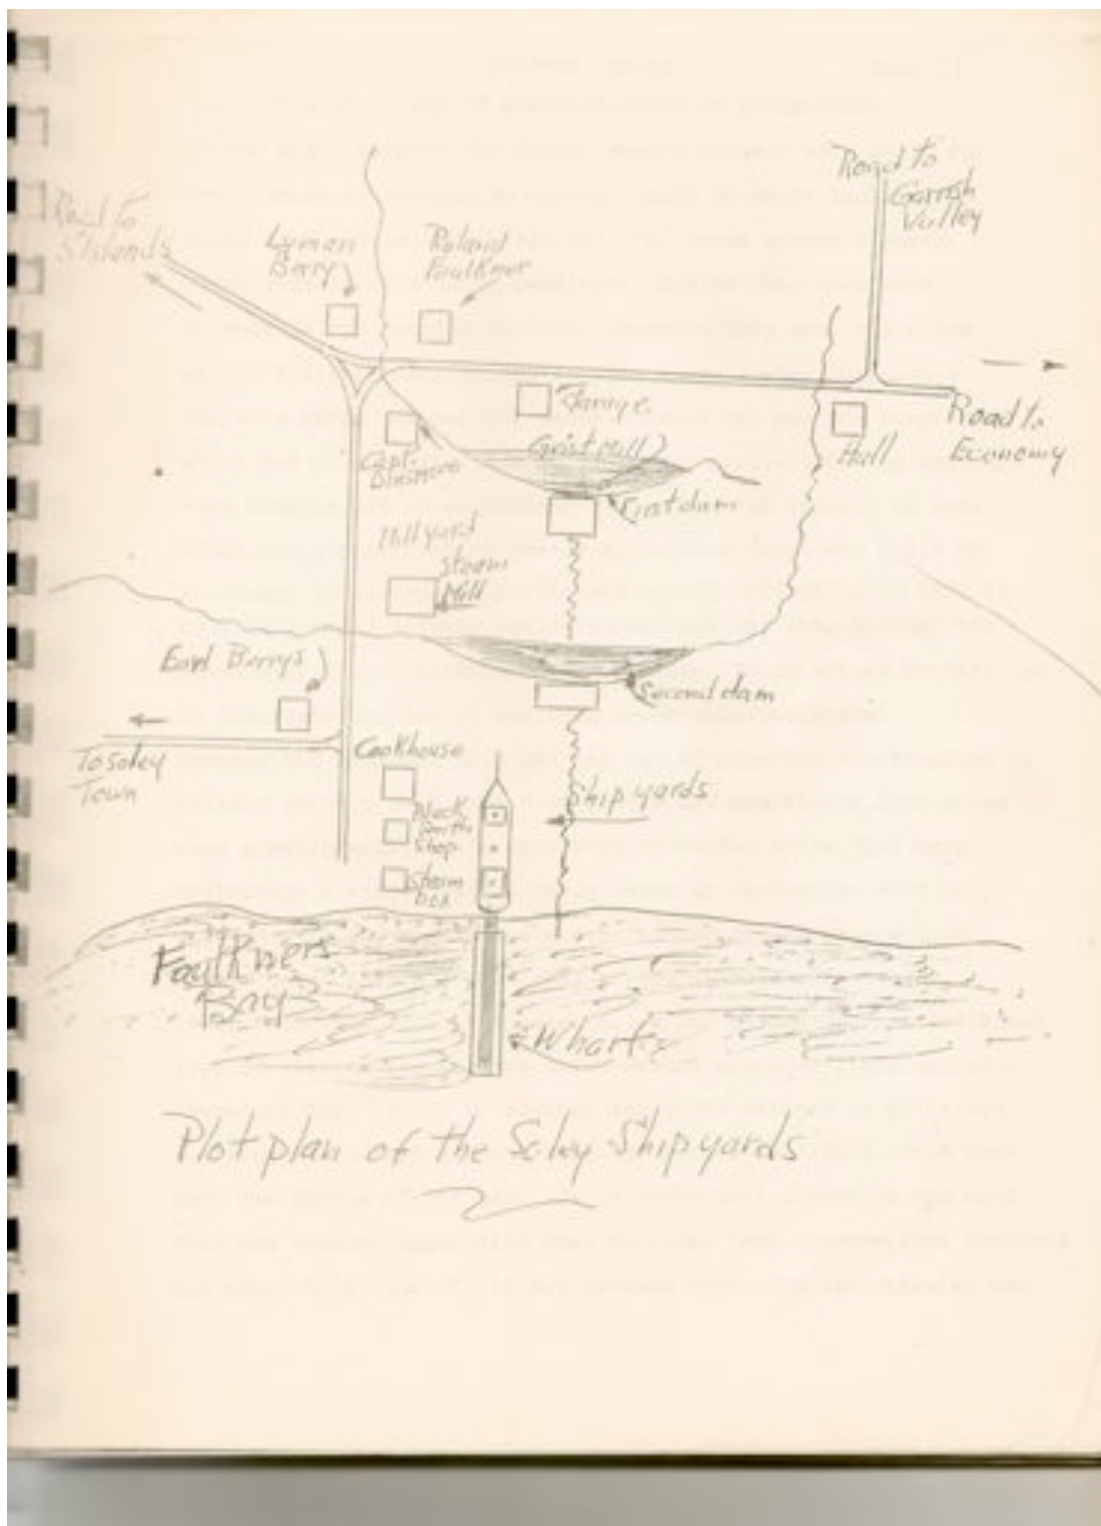 Road to
5 Islands
Lyman
Berry
Roland
Faulkner
Road to
Gerrish
Valley
Garage
Grist Mill
Hall
Road to
Economy
Capt.
Dinsmore
First dam
Mill yard
Steam
Mill
Earl Berrys
Second dam
To Soley
Town
Cookhouse
Black
Smith
Shop
Steam
box
Ship yards
Faulkners
Bay
Wharf
Plot plan of the Soley Shipyards